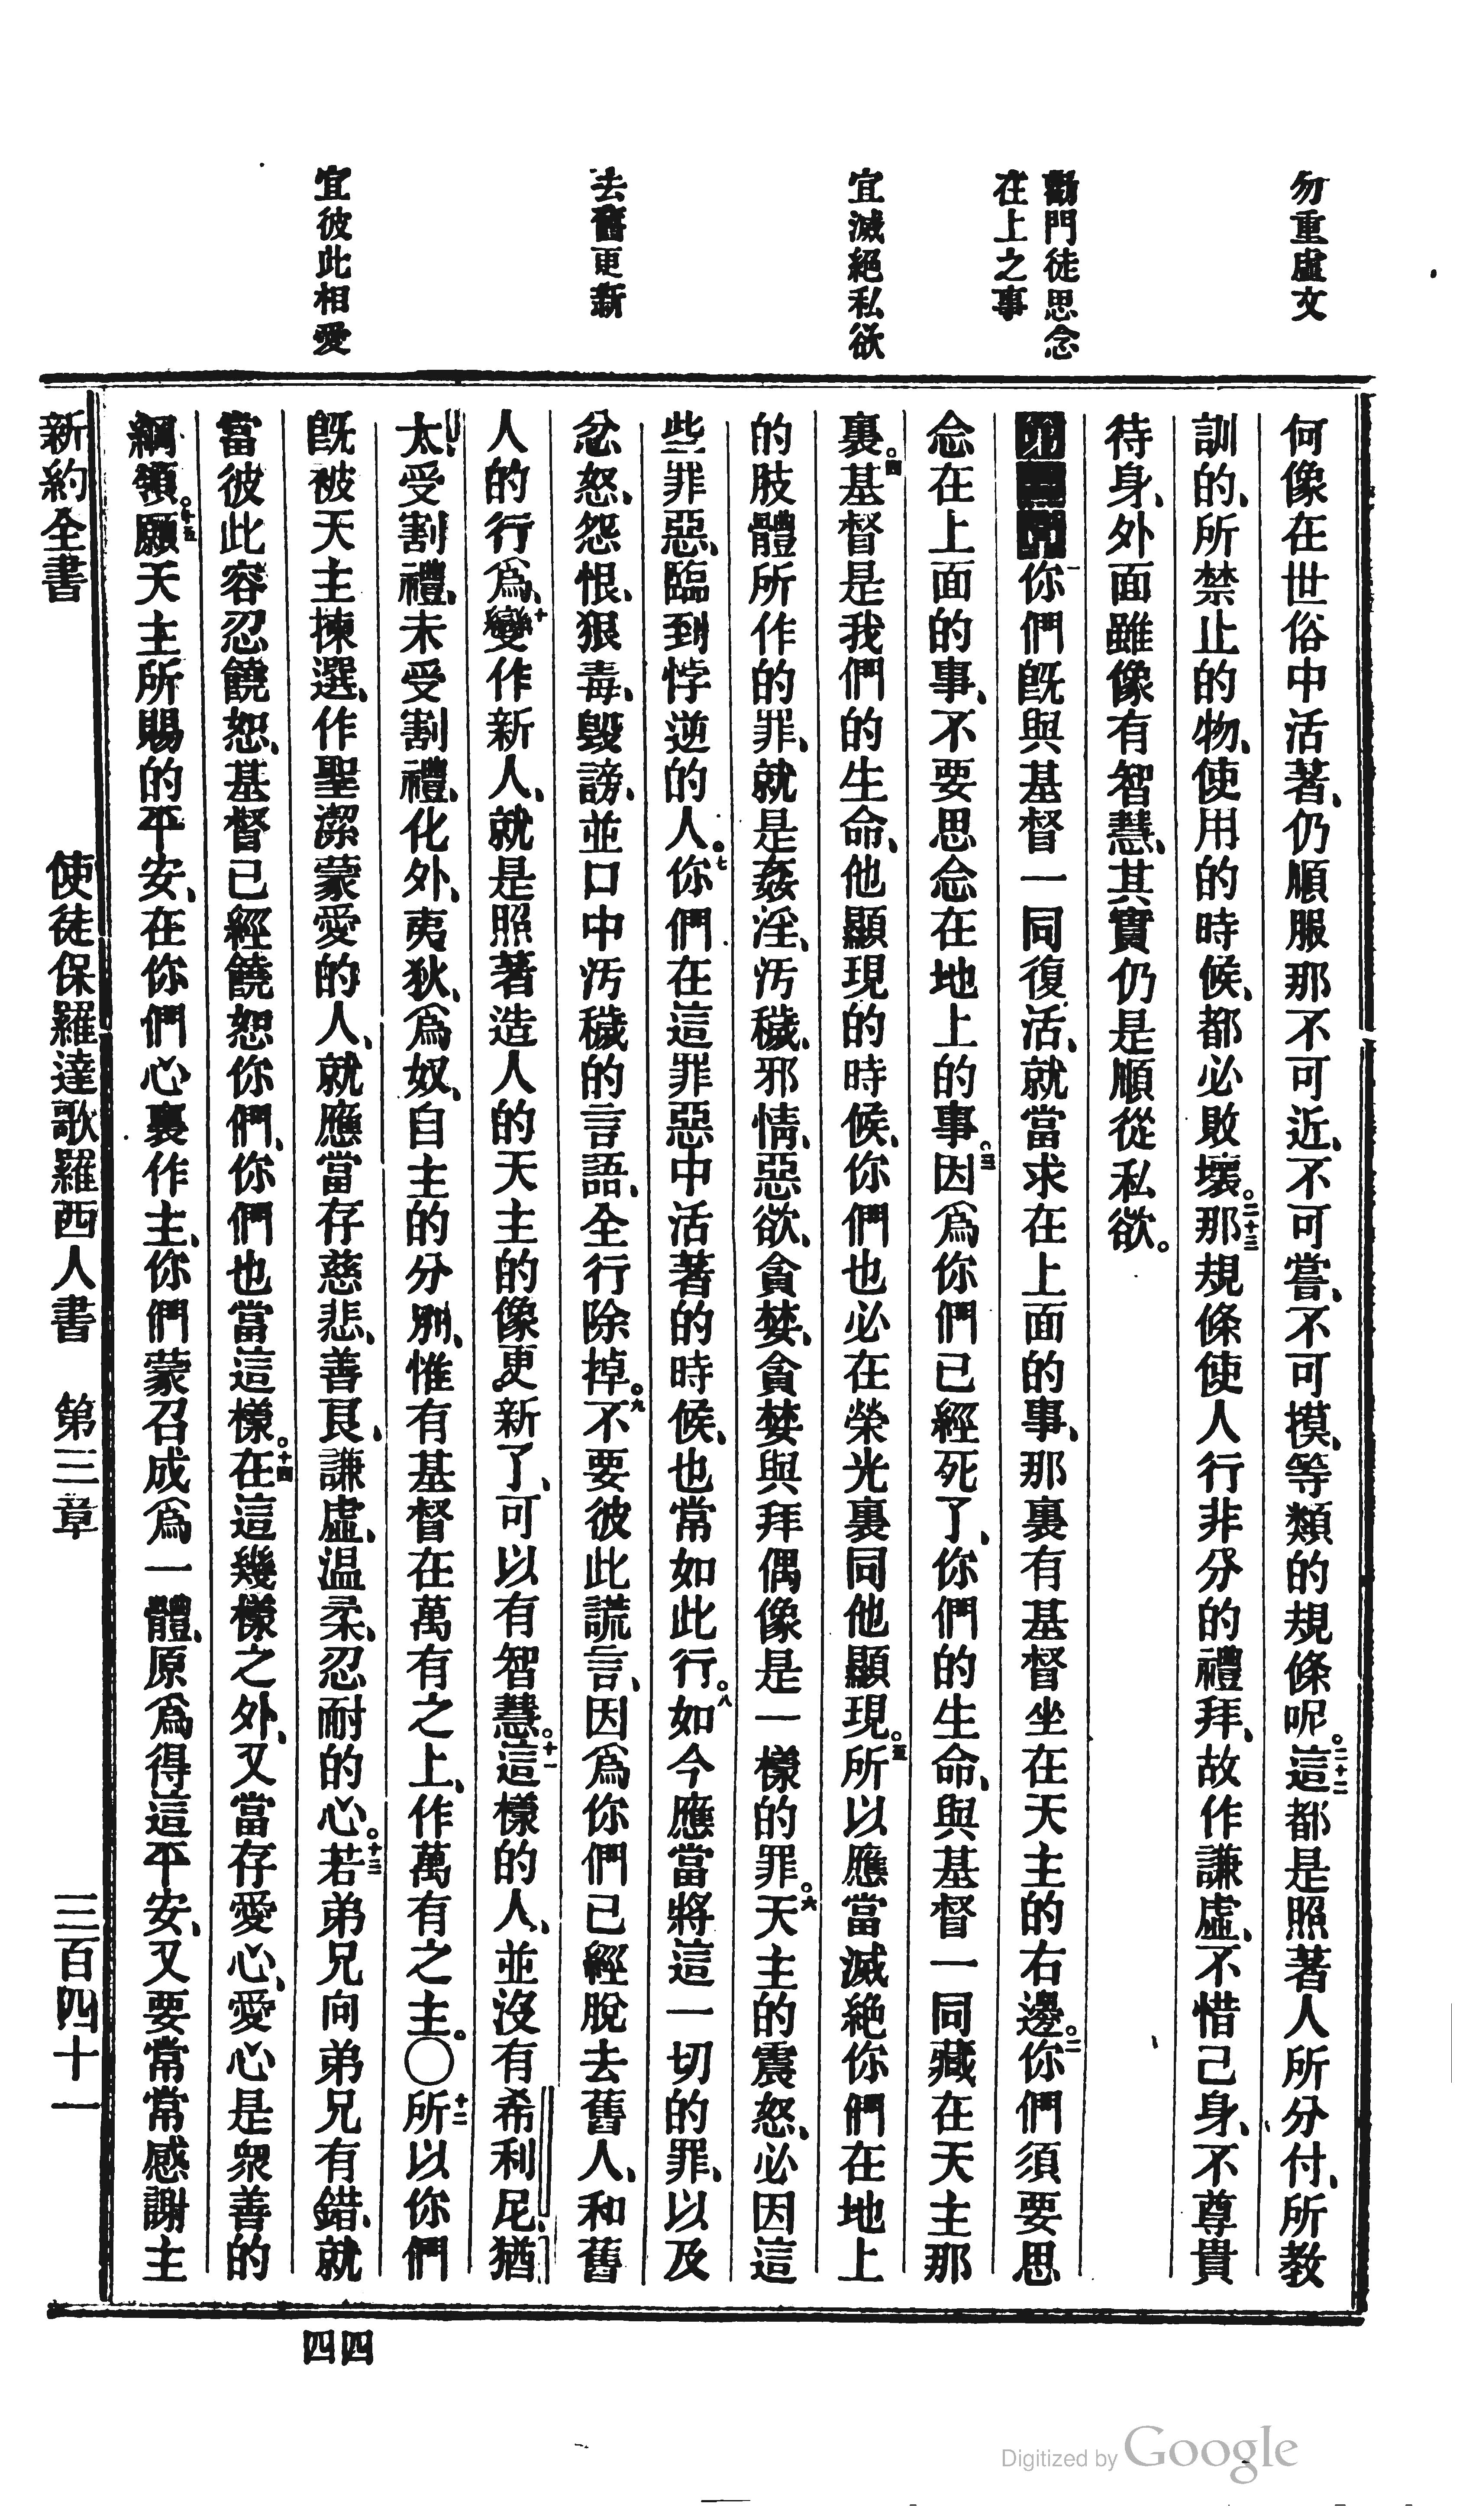 勿重虛文
勸門徒思念
在上之事
宜滅絕私欲
去舊更新
宜彼此相愛
何像在世俗中活著、仍順服那不可近、不可嘗、不可摸、等類的規條呢。二十二這都是照著人所分付、所教
訓的、所禁止的物、使用的時候、都必敗壞。二十三那規條使人行非分的禮拜、故作謙虛、不惜己身、不尊貴
待身、外面雖像有智慧、其實仍是順從私欲。
第三章一你們既與基督一同復活、就當求在上面的事、那裏有基督坐在天主的右邊。二你們須要思
念在上面的事、不要思念在地上的事。三因爲你們已經死了、你們的生命、與基督一同藏在天主那
裏。四基督是我們的生命、他顯現的時候、你們也必在榮光裏同他顯現。五所以應當滅絕你們在地上
的肢體所作的罪、就是姦淫、汚穢、邪情、惡欲、貪婪、貪婪與拜偶像是一樣的罪。六天主的震怒、必因這
些罪惡、臨到悖逆的人。七你們在這罪惡中活著的時候、也常如此行。八如今應當將這一切的罪、以及
忿怒、怨恨、狠毒、毀謗、並口中汚穢的言語、全行除掉。九不要彼此謊言、因爲你們已經脫去舊人、和舊
人的行爲、十變作新人、就是照著造人的天主的像更新了、可以有智慧。十一這樣的人、並沒有希利尼、猶
太、受割禮、未受割禮、化外、夷狄、爲奴、自主的分別、惟有基督在萬有之上、作萬有之主。〇十二所以你們
既被天主揀選、作聖潔蒙愛的人、就應當存慈悲、善良、謙虛、温柔、忍耐的心。十三若弟兄向弟兄有錯、就
當彼此容忍饒恕、基督已經饒恕你們、你們也當這樣。十四在這幾樣之外、又當存愛心、愛心是衆善的
綱領。十五願天主所賜的平安、在你們心裏作主、你們蒙召成爲一體、原爲得這平安、又要常常感謝主
新約全書 使徒保羅達歌羅西人書 第三章 三百四十一
四四
Digitized by Google